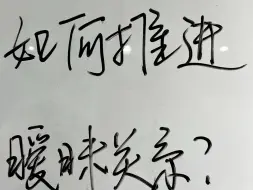 如何推进
暧昧关系?